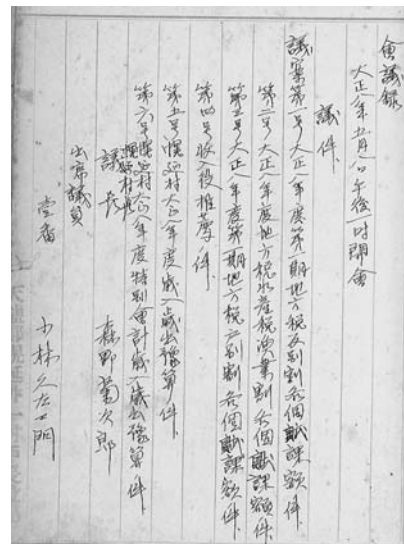 會議録
大正八年五月八日午後一時開會
議件
議案第一号大正八年度第一期地方税反別割各個賦課額ノ件
第二号大正八年度地方税水産税漁業割各個賦課額ノ件
第三号大正八年度第一期地方税戸別割各個賦課額ノ件
第四号收入役推薦ノ件
第五号幌延村大正八年度歳入歳出豫算ノ件
第六号幌延村大正八年度特別會計歳入歳出豫算ノ件
議長 森野菊次郎
出席議員
壹番 小林久左エ門